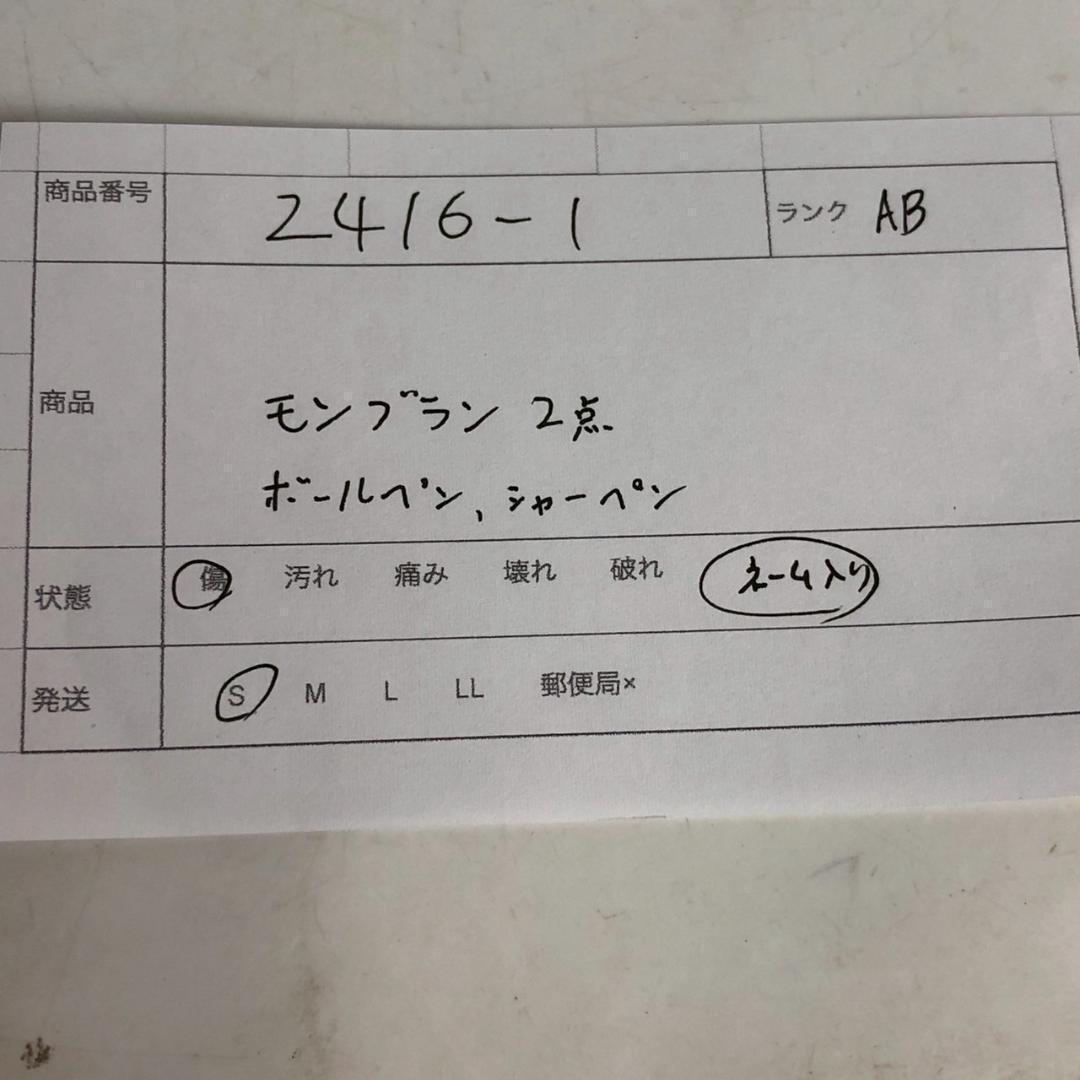 商品番号 2416-1 ランク AB
商品
モンブラン 2点
ボールペン、シャーペン
状態 傷 汚れ 痛み 壊れ 破れ ネーム入り
発送 S M L LL 郵便局×